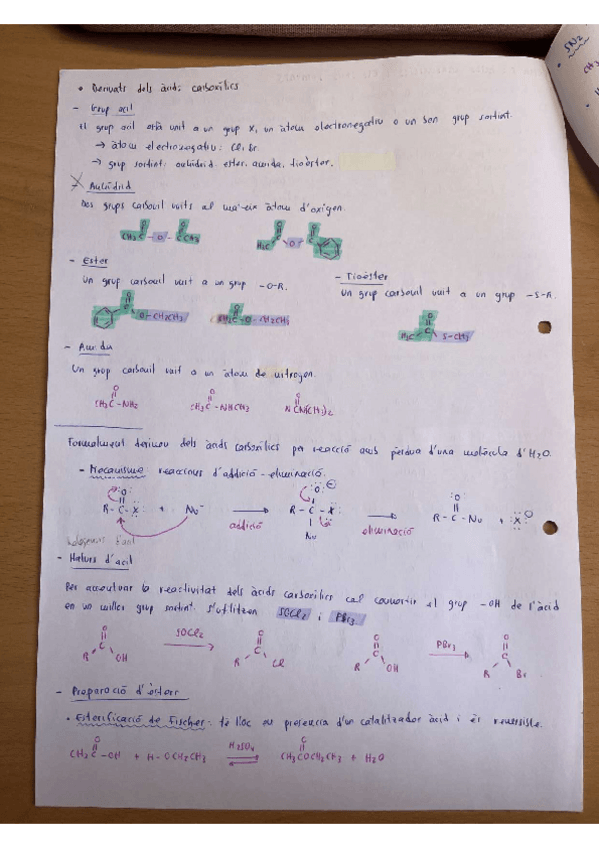 • Derivats dels àcids carboxílics
- Grup acil
El grup acil està unit a un grup X, un àtom electronegatiu o un bon grup sortint.
→ àtom electronegatiu: Cl, Br.
→ grup sortint: anhídrid, ester, amida, tioéster.
Anhídrid
Dos grups carbonil units al mateix àtom d'oxigen.
- Ester
Un grup carbonil unit a un grup -O-R.
- Tioéster
Un grup carbonil unit a un grup -S-R.
O-CH2CH3
S-CH3
- Amida
Un grup carbonil unit a un àtom de nitrogen.
CH3C-NH2 CH3C-NHCH3
Formalment deriven dels àcids carboxílics per reacció amb pèrdua d'una molècula d'H2O.
- Mecanisme reaccions d'addició-eliminació.
R-C-X: + Nu⁻ addició R-C-X: Nu eliminació R-C-Nu + :X:
- Halurs d'àcid
Per augmentar la reactivitat dels àcids carboxílics cal convertir el grup -OH de l'àcid
en un millor grup sortint. S'utilitzen SOCl2 i PBr3.
R C O OH SOCl2 R C O Cl R C O OH PBr3 R C O Br
- Preparació d'èsters
• Esterificació de Fischer: té lloc en presencia d'un catalitzador àcid i és reversible.
CH3C-OH + H-OCH2CH3 H2SO4 CH3COCH2CH3 + H2O
SN2
CH3